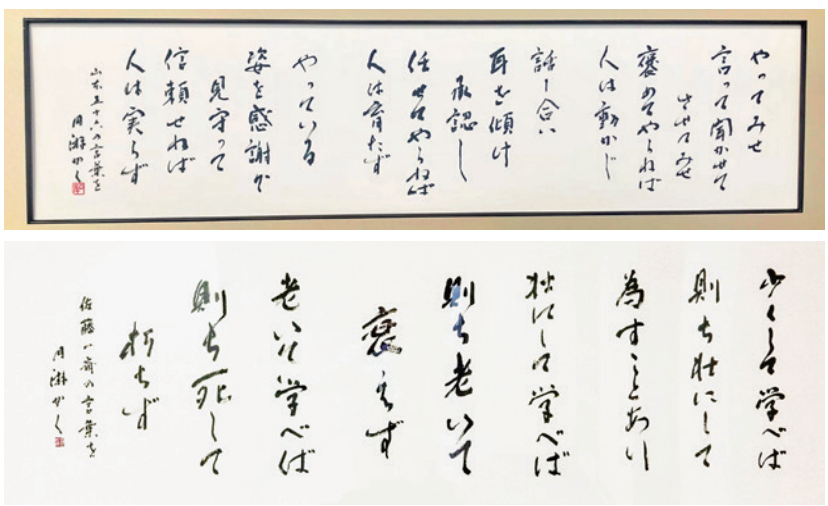 やってみせ
言って聞かせて
させてみせ
褒めてやらねば
人は動かじ
話し合い
耳を傾け
承認し
任せてやらねば
人は育たず
やっている
姿を感謝で
見守って
信頼せねば
人は実らず
山本五十六の言葉を
月游かく
少くして学べば
則ち壮にして
為すことあり
壮にして学べば
則ち老いて
衰えず
老いて学べば
則ち死して
朽ちず
佐藤一斎の言葉を
月游かく